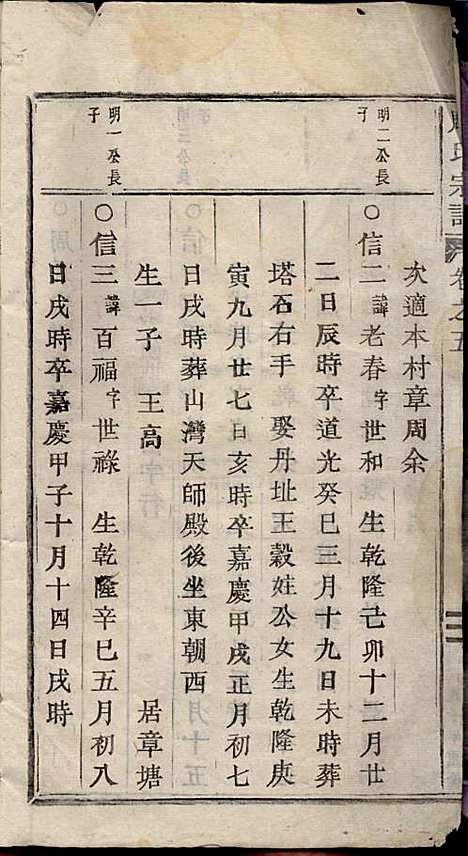 氏宗譜 卷之五
次適本村章周余
明二公長子
○信二諱老春字世和 生乾隆己卯十二月廿
二日辰時卒道光癸巳三月十九日未時葬
塔石右手 娶丹址王穀姓公女生乾隆庚
寅九月廿七日亥時卒嘉慶甲戌正月初七
日戌時葬山灣天師殿後坐東朝西
生一子 王高 居章塘
明一公長子
○信三諱百福字世祿 生乾隆辛巳五月初八
日戌時卒嘉慶甲子十月十四日戌時